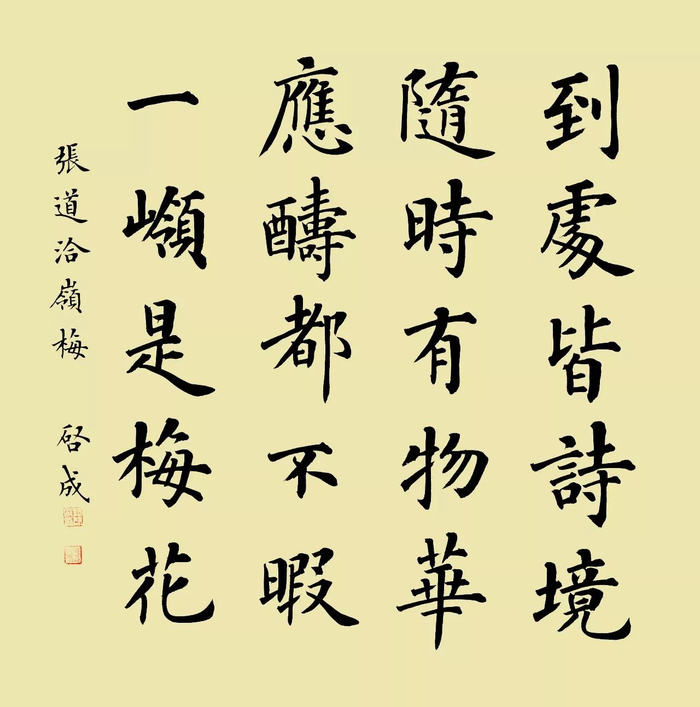 到處皆詩境
隨時有物華
應醻都不暇
一嶺是梅花
張道洽嶺梅 啓成